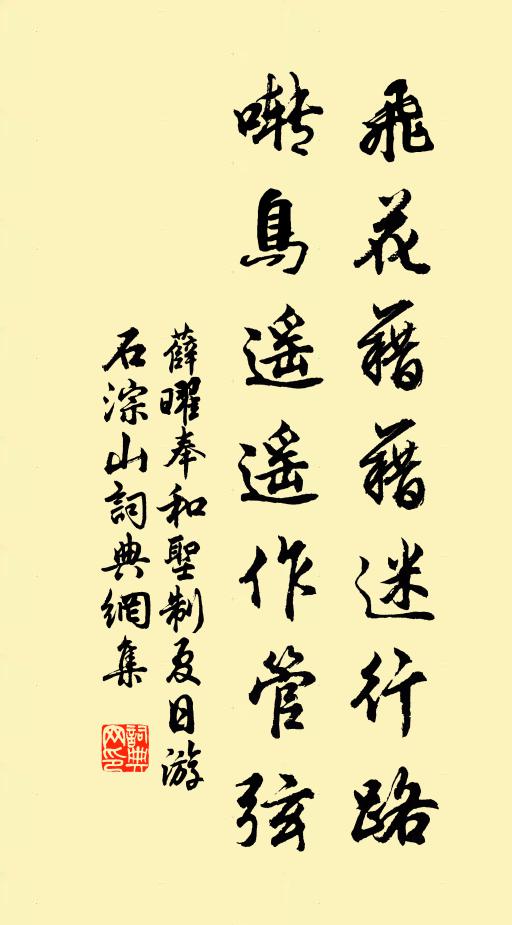 飛花藉藉迷行路
囀鳥遥遥作管弦
薛曜奉和聖制夏日游
石淙山詞典網集
詞典网印